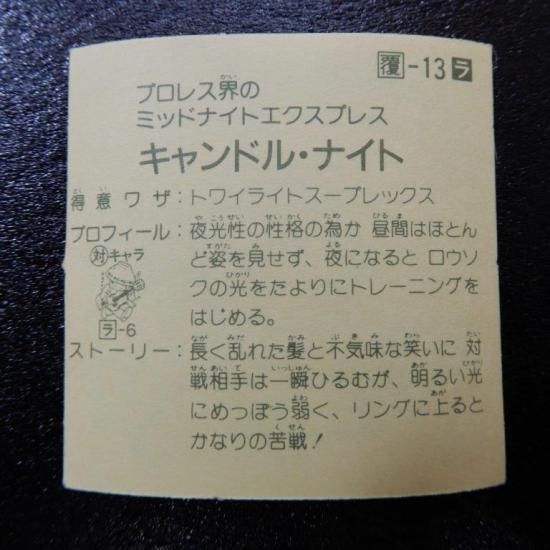 覆-13ラ
プロレス界の
ミッドナイトエクスプレス
キャンドル・ナイト
得意ワザ:トワイライトスープレックス
プロフィール:夜光性の性格の為か 昼間はほとん
ど姿を見せず、夜になると ロウソ
クの光をたよりにトレーニングを
はじめる。
対キャラ
ラ-6
ストーリー:長く乱れた髪と不気味な笑いに 対
戦相手は一瞬ひるむが、明るい光
にめっぽう弱く、リングに上ると
かなりの苦戦!